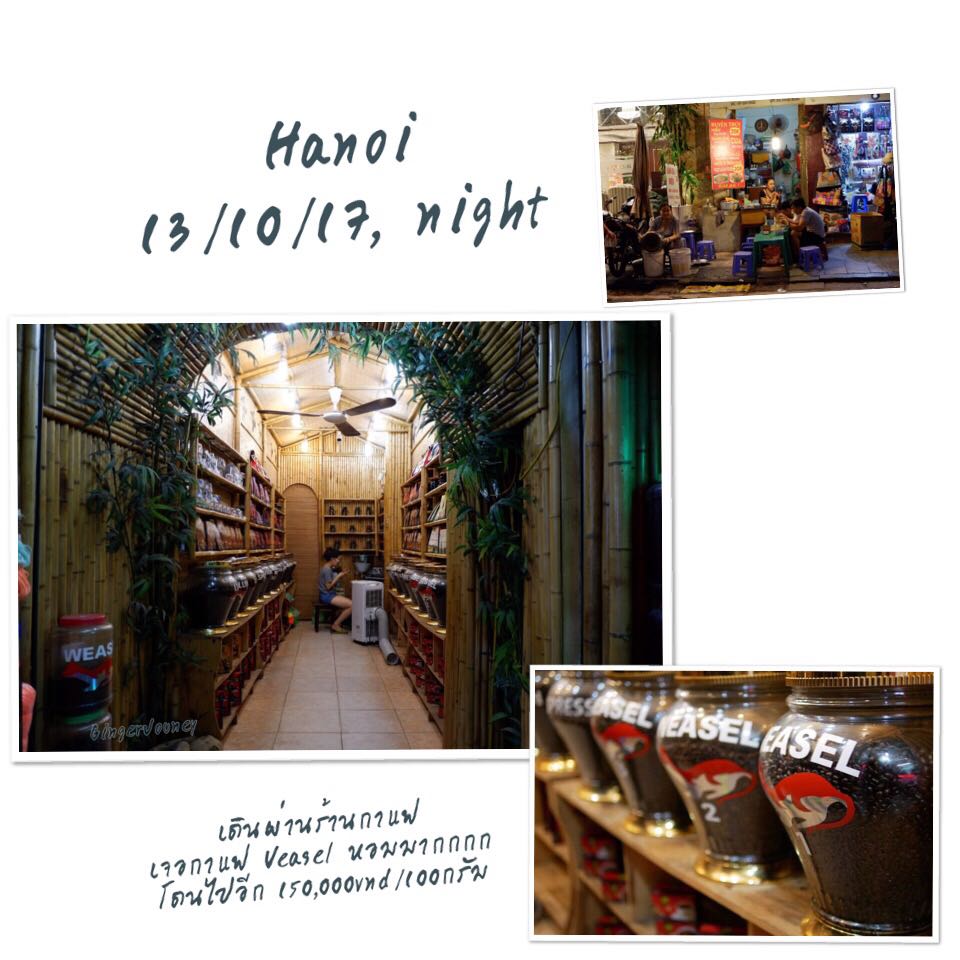 Hanoi
13/10/17, night
WEAS
GingerJooney
ESS
EASEL
EASEL
2
EASEL
เดินผ่านร้านกาแฟ
เจอกาแฟ Veasel หอมมากกกก
โดนไปอีก 150,000vnd/100กรัม